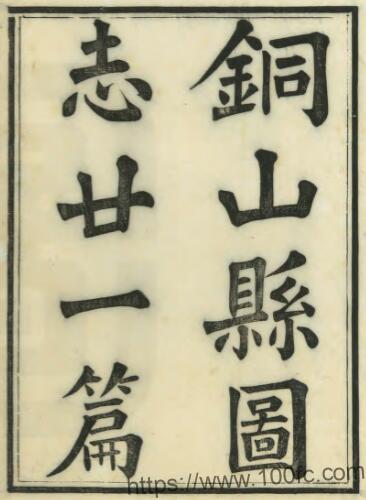 銅山縣圖
志廿一篇
https://www.100fc.com